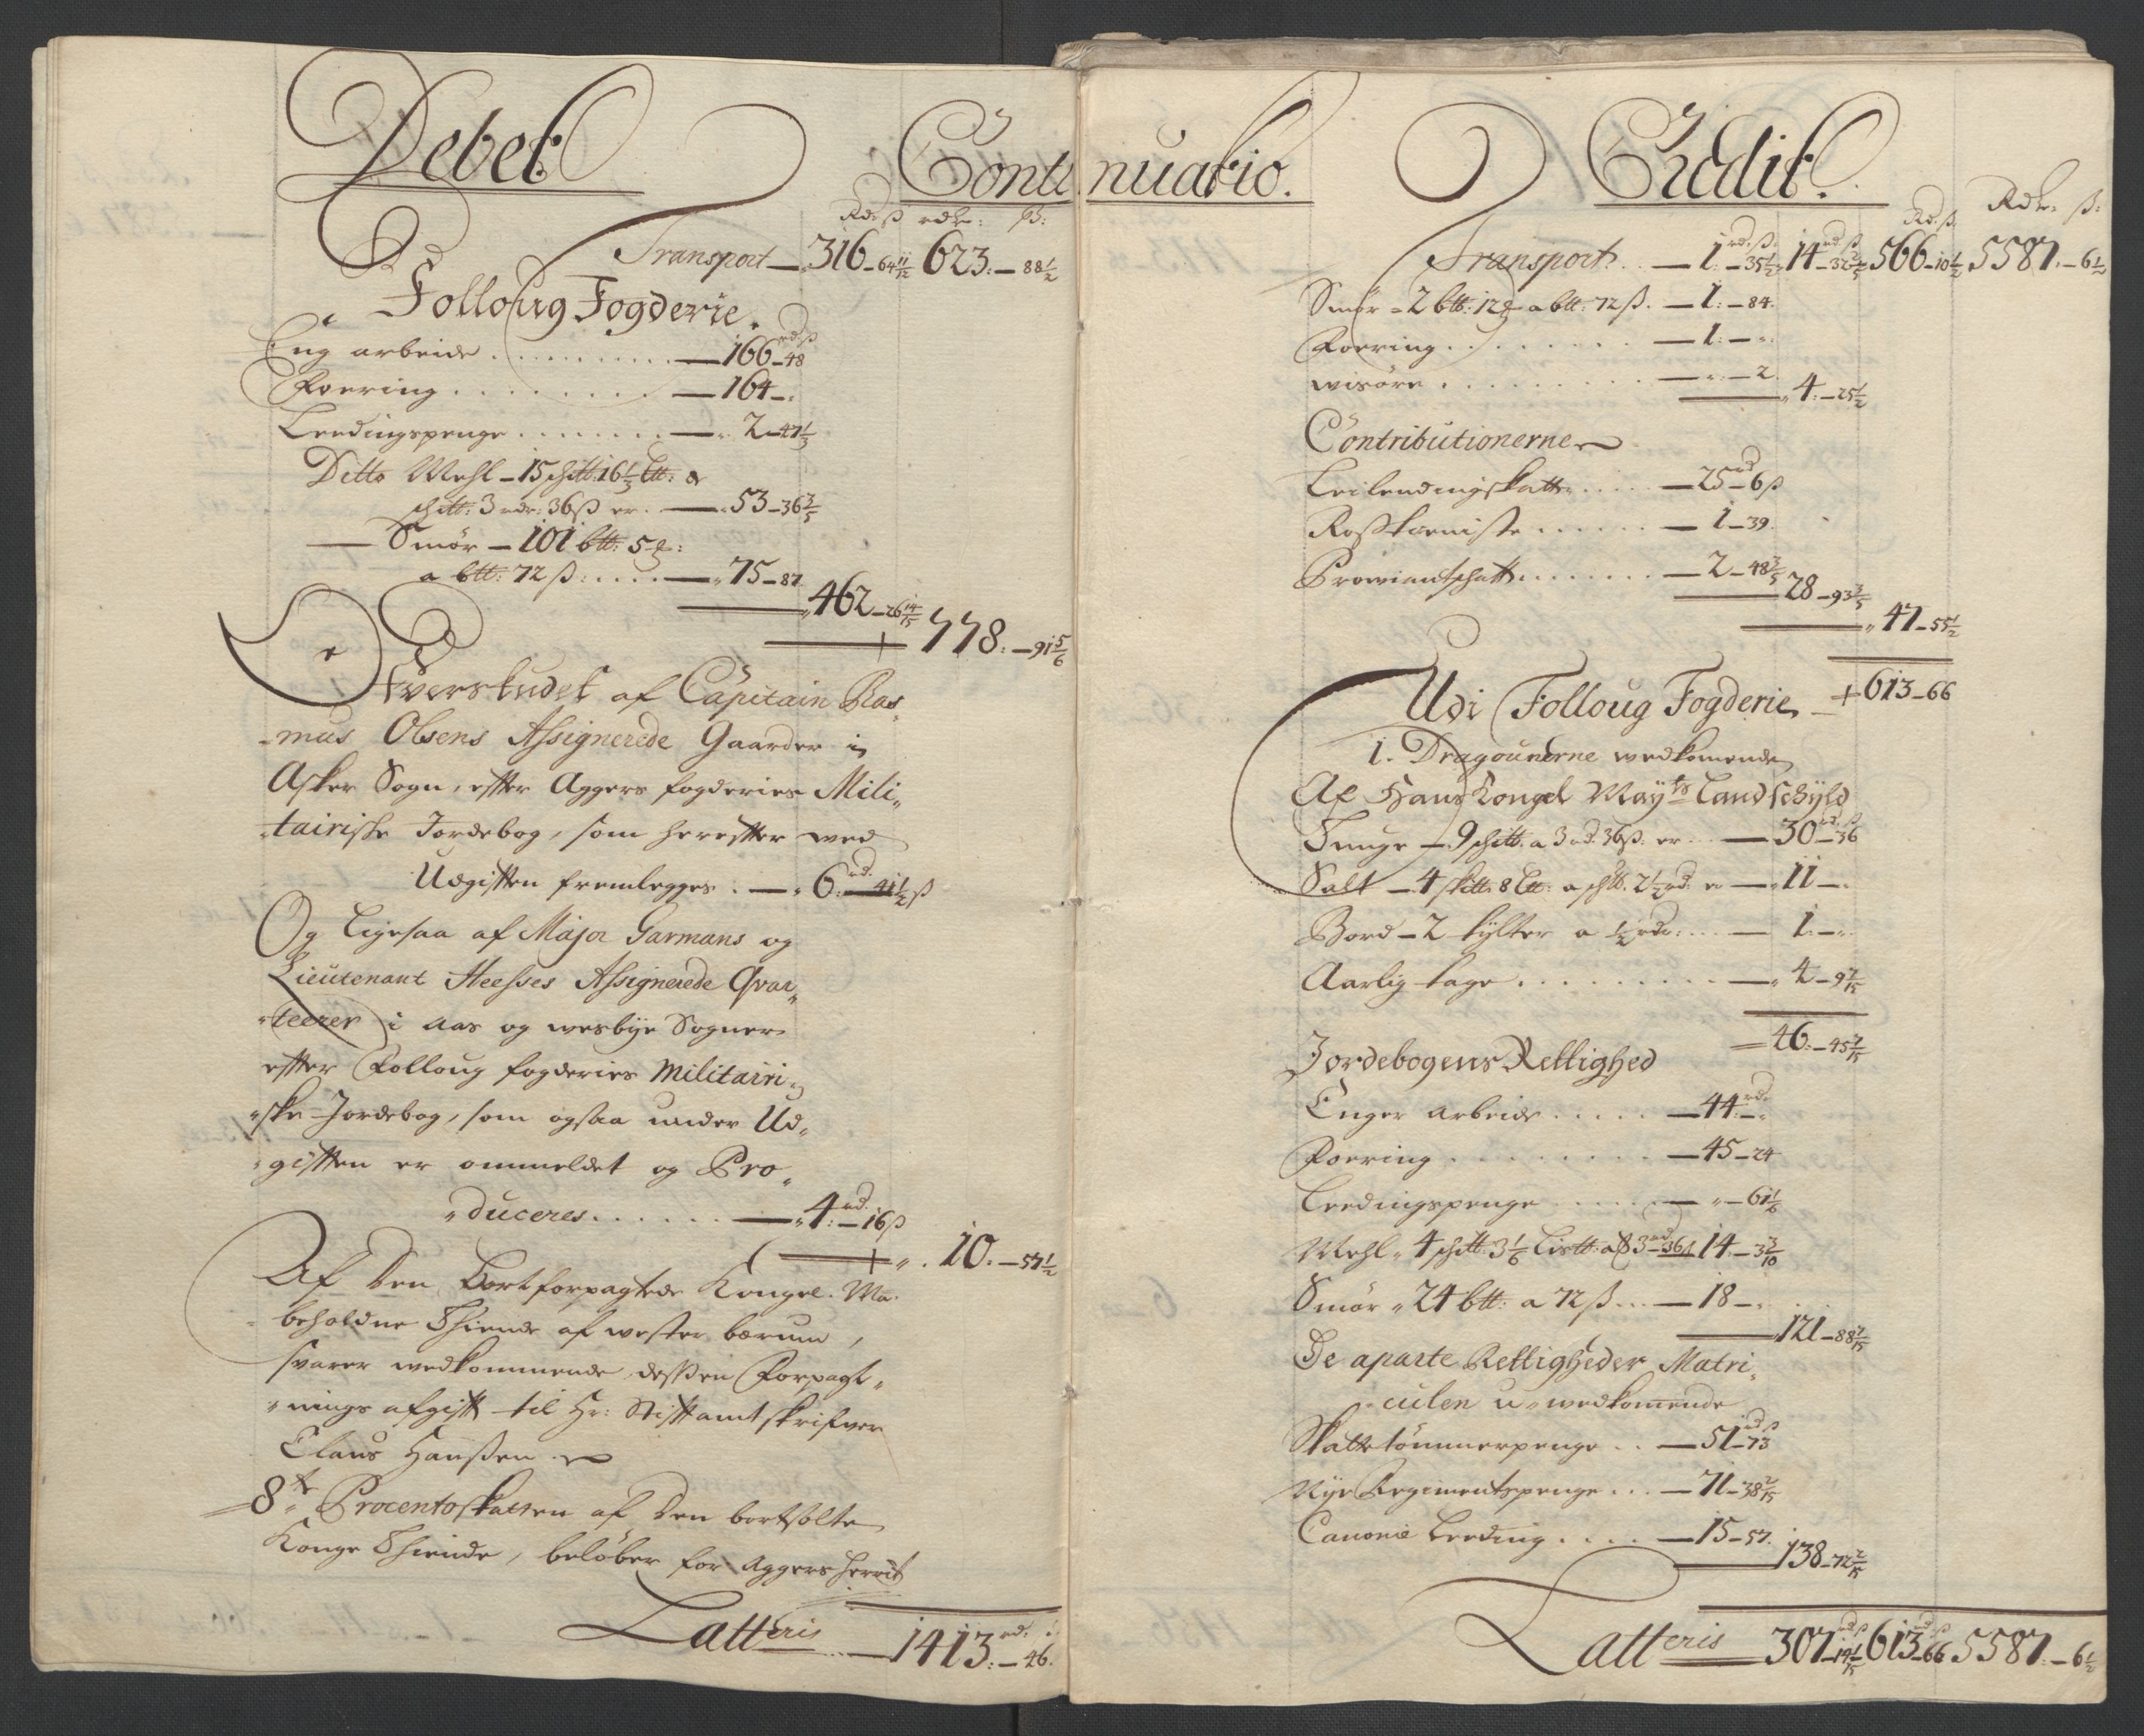 Debet
Continuatio.
Rd: ß rdr: ß:
Transport — 316 - 64 11/12 623: - 88 1/2
Folloug Fogderie.
rd ß
Eng arbeide . . . . . . . . — 166 - 48
Foering . . . . . . . . — 164 - :
Leedingspenge . . . . . . . — 2 - 47 1/3
Ditto Mehl - 15 schltt: 16 1/3 ltt: a
schltt: 3 rdr: 36 ß er . — 53 - 36 3/5
— Smør — 101 btt: 5
a btt: 72 ß: . . . . — 75 - 87
462 - 26 14/15
778: - 91 5/6
Overskudet af Capitain Ras„
„mus Olsens Assignerede Gaarder i
Asker Sogn, efter Aggers fogderies Mili„
„tairiske Jordebog, som herefter ved
Udgiften fremlegges . — 6 rd. 41 1/2 ß
Og ligesaa af Major Garmans og
Lieutenant Heesses Assignerede Qvar„
„teerer i Aas og wesbye Sogner
efter Folloug fogderies Militairi„
„ske Jordebog, som ogsaa under Ud„
„giften er ommeldet og Pro„
„duceres . . . . . . — 4 rd. - 16 ß
10: - 57 1/2
Af Den Bortforpagtede Kongel. Ma.
beholdne Thiende af wester bærum,
svarer wedkommende dessen Forpagt„
„nings afgift til Hr: Stiftamtskrifver
Claus Hanssen
8te Procentoskatten af Den bortsolte
Konge Thiende, beløber for Aggers herrit
Latteris . . — 1413: rd: - 46.
Credit.
Rd. ß: Rdr: ß:
rd. ß. rd ß
Transport . . — 1: - 35 1/2 14 - 32 2/5 566 - 10 1/2 5587. - 6 1/2
Smør - 2 btt: 12 a btt: 72 ß. — 1: - 84.
Foering . . . . . . . . — 1: - „.
wisøre . . . . . . . . . — „ - 2.
4. - 25 1/2
Contributionerne
Leilendingskatt . . . . — 25 rd - 6 ß
Rosstieniste . . . . . . — 1 - 39.
Proviantschatt . . . . . . . — 2 - 48 3/5
28 - 93 3/5
„ 47 - 55 1/2
+ 613 - 66
Udi Folloug Fogderie
1. Dragounerne wedkomende
Af Hans Kongel Mayts Landschyld
rd. ß
Tunge — 9 schltt. a 3 rd. 36 ß. er . . — 30 - 36
Salt — 4 skltt: 8 ltt: a schltt. 2 1/2 rd. er — 11 - .
Bord - 2 tylter a 1/2 rdr: . . — 1. - „.
Aarlig tage . . . . . . . . . — „ 4 - 9 7/15
46: - 45 7/15
Jordebogens Rettighed
Enger Arbeide . . . . . — 44 rd. - .
Foering . . . . . . . . . — 45 - 24
Leedingspenge . . . . — „ - 61 1/6
Mehl „ 4 schltt: 3 1/6 Listt: a 3 rd - 36 ß 14. - 3 3/10
Smør „ 24 btt: a 72 ß . . . — 18 - .
121 - 88 7/15
De aparte Rettigheder Matri„
„culen u„wedkomende
rd ß
Skattetømmerpenge . . . — 51 - 73
Nye Regimentspenge . . . — 71 - 38 2/15
Canonie Leeding . . . . — 15 - 57.
138 - 72 2/15
rd ß rd ß
Latteris 307 - 14 1/15 613 - 66 5587. - 6 1/2